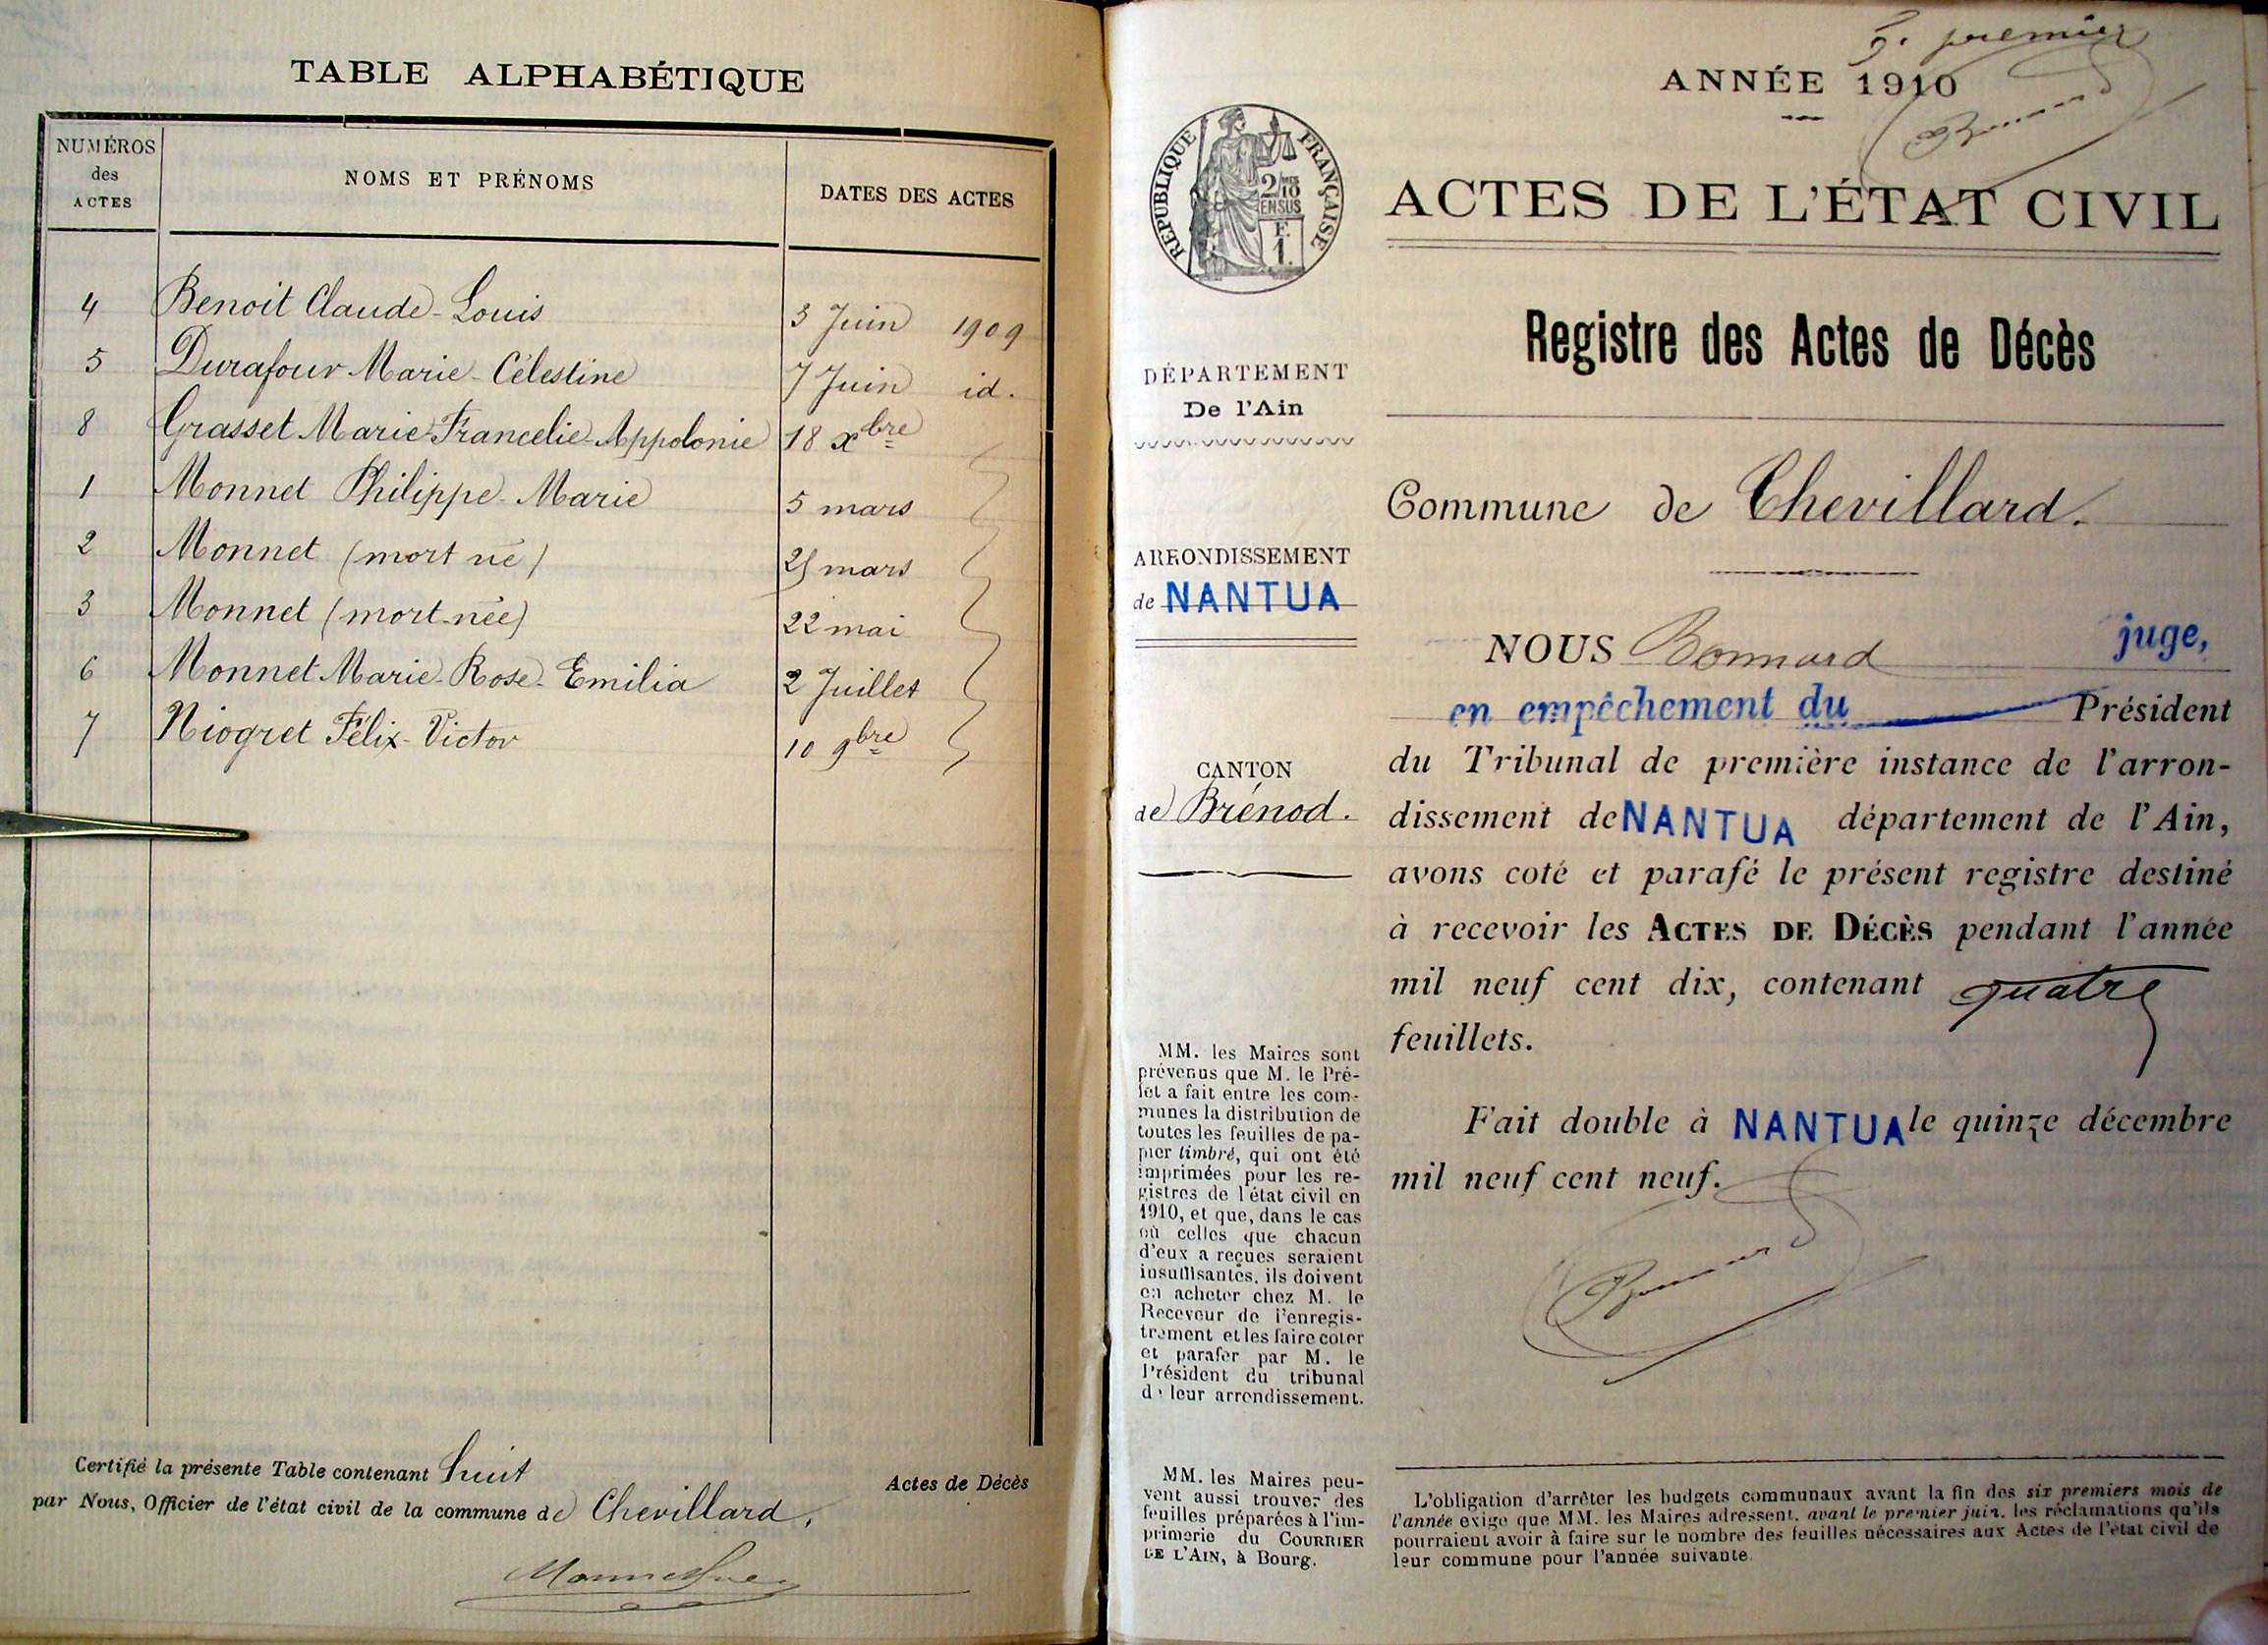 TABLE ALPHABÉTIQUE
NUMÉROS
des
ACTES
NOMS ET PRÉNOMS
DATES DES ACTES
4 Benoit Claude-Louis 3 Juin 1909
5 Durafour Marie-Célestine 7 Juin id.
8 Grasset Marie Francelie-Appolonie 18 xbre
1 Monnet Philippe-Marie 5 mars
2 Monnet (mort né) mars
3 Monnet (mort-née) 22 mai
6 Monnet Marie-Rose-Emilia 2 Juillet
7 Niogret Félix-Victor 10 9bre
Certifié la présente Table contenant huit Actes de Décès
par Nous, Officier de l'état civil de la commune de Chevillard.
f. premier
ANNÉE 1910
RÉPUBLIQUE FRANÇAISE
2/10
EN SUS
F.
1.
ACTES DE L'ÉTAT CIVIL
Registre des Actes de Décès
DÉPARTEMENT
De l'Ain
Commune de Chevillard.
ARRONDISSEMENT
de NANTUA
CANTON
de Brénod.
NOUS Bonnard juge,
en empêchement du Président
du Tribunal de première instance de l'arron-
dissement de NANTUA département de l'Ain,
avons coté et parafé le présent registre destiné
à recevoir les ACTES DE DÉCÈS pendant l'année
mil neuf cent dix, contenant quatre
feuillets.
Fait double à NANTUA le quinze décembre
mil neuf cent neuf.
MM. les Maires sont
prévenus que M. le Pré-
fet a fait entre les com-
munes la distribution de
toutes les feuilles de pa-
pier timbré, qui ont été
imprimées pour les re-
gistres de l'état civil en
1910, et que, dans le cas
où celles que chacun
d'eux a reçues seraient
insuffisantes, ils doivent
en acheter chez M. le
Receveur de l'enregis-
trement et les faire coter
et parafer par M. le
Président du tribunal
de leur arrondissement.
MM. les Maires peu-
vent aussi trouver des
feuilles préparées à l'im-
primerie du COURRIER
DE L'AIN, à Bourg.
L'obligation d'arrêter les budgets communaux avant la fin des six premiers mois de
l'année exige que MM. les Maires adressent, avant le premier juin, les réclamations qu'ils
pourraient avoir à faire sur le nombre des feuilles nécessaires aux Actes de l'état civil de
leur commune pour l'année suivante.